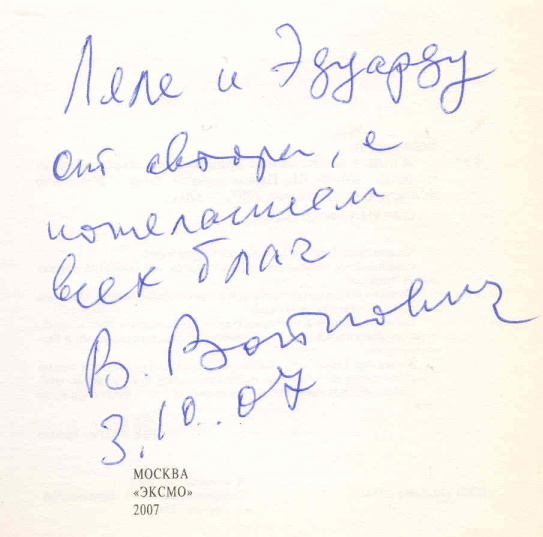 Ляле и Эдуарду
от автора, с
пожеланием
всех благ
В. Войнович
3.10.07
МОСКВА
«ЭКСМО»
2007